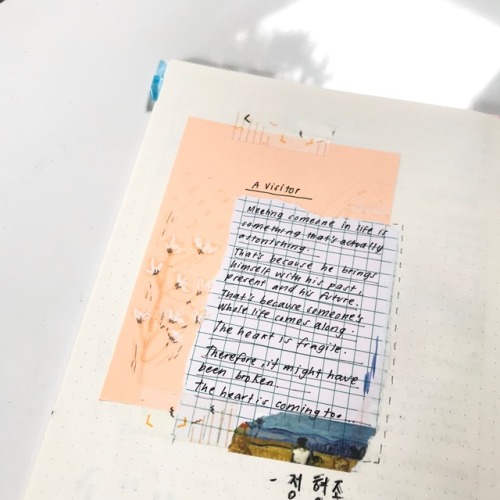 A Visitor
Meeting someone in life is
something that's actually
astonishing.
That's because he brings
himself with his past,
present and his future.
That's because someone's
whole life comes along.
The heart is fragile.
Therefore, it might have
been broken.
The heart is coming too...
- 정혀조